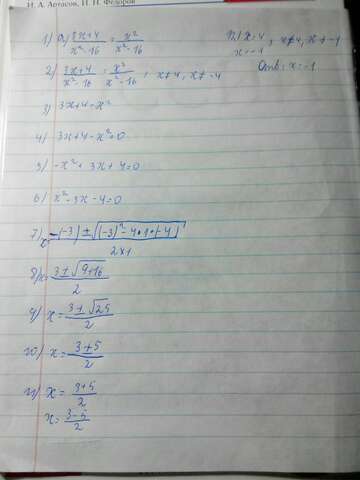 И. А. Артасов, И. Н. Федоров
1) а) 3x+4 / x²-16 = x² / x²-16
2) 3x+4 / x²-16 = x² / x²-16 ; x≠4, x≠-4
3) 3x+4=x²
4) 3x+4-x²=0
5) -x²+3x+4=0
6) x²-3x-4=0
7) x= -(-3)±√(-3)²-4•1•(-4) / 2×1
8) x= 3±√9+16 / 2
9) x= 3±√25 / 2
10) x= 3±5 / 2
11) x= 3+5 / 2
x= 3-5 / 2
12) x=4
x=-1 ; x≠4, x≠-4
Ответ: x=-1